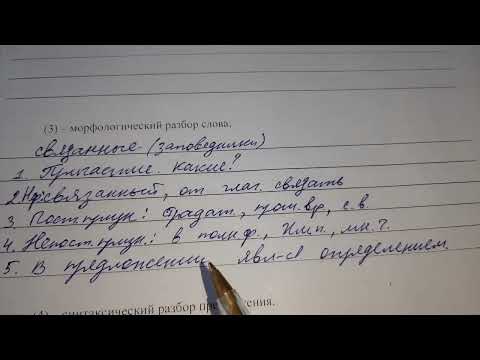 (3) – морфологический разбор слова,
связанные (заповедники)
1. Причастие. Какие?
2. Нф связанный, от глаг. связать
3. Пост. призн.: Страдат., прош. вр., с. в.
4. Непост. призн.: в полн. ф., И.п., мн. ч.
5. В предложении явл-ся определением.
(4) – синтаксический разбор предложения.